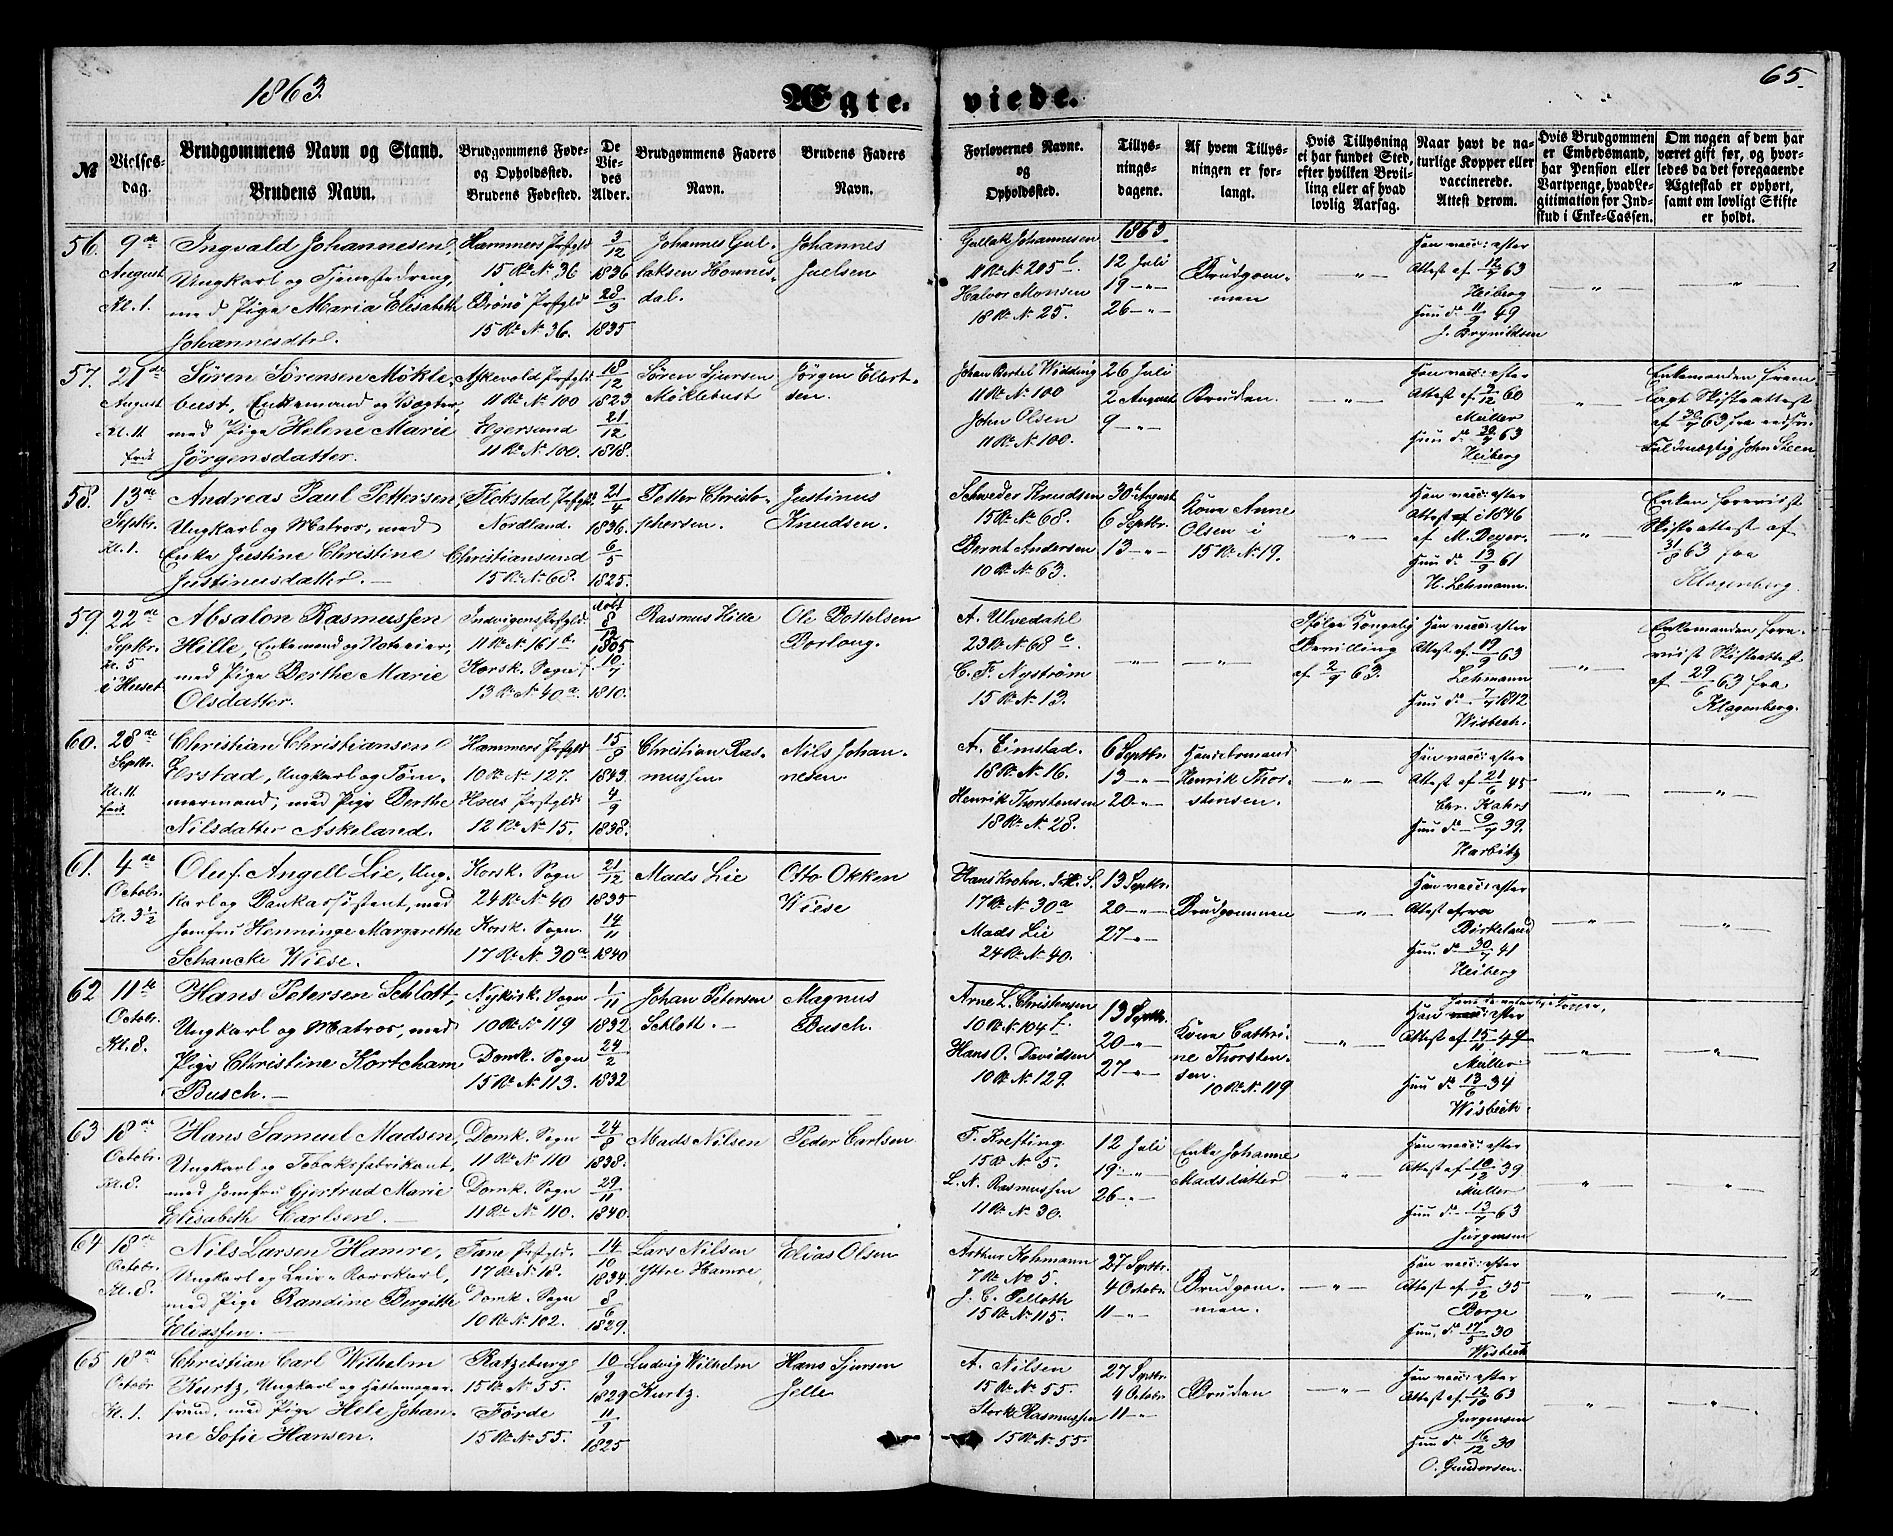 1863.
Ægteviede.
65.
№
Vielses-dag.
Brudgommens Navn og Stand.
Brudens Navn.
Brudgommens Føde- og Opholdssted.
Brudens Fødested.
De Viedes Alder.
Brudgommens Faders Navn.
Brudens Faders Navn.
Forlovernes Navne.
og
Opholdssted.
Tillysningsdagene.
Af hvem Tillysningen er forlangt.
Hvis Tillysning ei har fundet Sted, efter hvilken Bevilling eller af hvad lovlig Aarsag.
Naar havt de naturlige Kopper eller vaccinerede. Attest derom.
Hvis Brudgommen er Embedsmand, har Pension eller Vartpenge, hvad Legitimation for Indskud i Enke-Cassen.
Om nogen af dem har været gift før, og hvorledes da det foregaaende Ægteskab er ophørt, samt om lovligt Skifte er holdt.
56. 9de August Kl. 1.
Ingvald Johannesen,
Ungkarl og Tjenestedreng,
med Pige Maria Elisabeth
Johannesdtr.
Hammers Prstgjld
15 Rd. N. 36
Brönö Prstgjld
15 Rd. N. 36.
3/12 1836
28/3 1835
Johannes Gullaksen Honnesdal.
Johannes Juelsen
Gullak Johannesen
11 Rd. N. 205 b.
Halvor Monsen
18 Rd. N. 25.
1863
12 Juli
19 — " —
26 — " —
Brudgommen
— " —
Han vacc: efter
Attest af 12/7 63
Heiberg
Hun d. 11/9 49
J. Brynildsen
— " —
— " —
57. 21de August Kl. 11
Sören Sörensen Mökle-
bust, Enkemand og Vægter,
med Pige Helene Marie
Jörgensdatter.
Askevold Prstgjld
11 Rd. N. 100
Egersund
11 Rd. N. 100.
18/12 1823
21/12 1818.
Sören Sjursen
Möklebust
Jörgen Ellertsen.
Johan Bertel Widding
11 Rd. N. 100
John Olsen
11 Rd. N. 100.
26 Juli
2 August
9 — " —
Bruden.
— " —
Han vacc: efter
Attest af 2/12 60
Müller
Hun d. 30/7 63
Heiberg
"
Enkemanden frem-
lagt Skifteattest
af 30/7 63 fra
Fuldmægtig John Steen
58. 13de Septbr. Kl. 1.
Andreas Paul Pettersen,
Ungkarl og Matros, med
Enke Justine Christine
Justinusdatter. —
Flakstad Prstgjld.
Nordland.
Christiansund
15 Rd. N. 68.
21/4 1836.
6/5 1825.
Petter Christophersen.
Justinus Knudsen.
Schweder Knudsen
15 Rd. N. 68.
Bernt Andersen
10 Rd. N. 63.
30te August
6 Septbr.
13 — " —
Kone Anne
Olsen i
15 Rd. N. 19.
— " —
Han vacc: efter
Attest af i 1846
af M. Deyer.
Hun d. 13/9 61
H. Lehmann.
— " —
Enken forevist
Skifteattest af
31/8 63 fra
Klagenberg.
59. 22de Septbr. Kl. 5 i Huset
Absalon Rasmussen
Hille, Enkemand og Noteeier,
med Pige Berthe Marie
Olsdatter.
Indvigens Prstgjld.
11 Rd. N. 161 d.
Korsk. Sogn
13 Rd. N. 40 a.
döbt 8/12 1805
10/7 1810.
Rasmus Hille
Ole Bottelsen
Borloug.
A. Ulvedahl
23 Rd. N. 68 c
C. F. Nyström
15 Rd. N. 13.
— " —
— " —
Ifölge Kongelig
Bevilling
af 2/9 63.
Han vacc: efter
Attest af 19/9 63
Lehmann
Hun d. 7/7 1812
Wisbech.
— " —
Enkemanden fore-
viist Skifteattest
af 29/6 63 fra
Klagenberg.
60. 28de Septbr. Kl. 11
Christian Christiansen
Erstad, Ungkarl og Töm-
mermand, med Pige Berthe
Nilsdatter Askeland.
Hammers Prstgjld
10 Rd. N. 127.
Hous Prstgjld
12 Rd. N. 15.
15/8 1843.
4/9 1838.
Christian Rasmussen.
Nils Johannesen
A. Eimstad.
18 Rd. N. 16.
Henrik Thorstensen
18 Rd. N. 28.
6 Septbr.
13 — " —
20 — " —
Handelsmand
Henrik Thorstensen.
— " —
Han vacc: efter
Attest af 21/6 45
Chr. Kahrs
Hun d. 9/7 39.
Harbitz
— " —
— " —
61. 4de Octobr. Kl. 3½
Oluf Angell Lie, Ung-
karl og Bankassistent, med
Jomfru Henninge Margarethe
Schancke Wiese.
Korsk. Sogn
24 Rd. N. 40
Korsk. Sogn.
17 Rd. N. 30 a
21/12 1835
14/11 1840
Mads Lie
Otto Okken
Wiese
Hans Krohn. J. H. S.
17 Rd. N. 30 a
Mads Lie
24 Rd. N. 40.
13 Septbr.
20 — " —
27 — " —
Brudgommen
— " —
Han vacc: efter
Attest af fra
Birkeland
Hun. d. 30/7 41
Heiberg
— " —
— " —
62 11te Octobr. Kl. 8.
Hans Petersen Schlott,
Ungkarl og Matros, med
Pige Christine Kortcham
Busch. —
Nykirk. Sogn
10 Rd. N. 119
Domk. Sogn
15 Rd. N. 113.
1/11 1832
24/2 1832
Johan Petersen
Schlott. —
Magnus
Busch.
Arne L. Christensen
10 Rd. N. 104 f.
Hans O. Davidsen
10 Rd. N. 129.
13 Septbr.
20 — " —
27 — " —
Kone Cathrine
Thorstensen.
10 Rd. N. 119
— " —
havt de naturlige Kopper,
Han vacc: efter
Attest af 15/11 49
Müller
Hun d. 13/6 34
Wisbech.
— " —
— " —
63 18de Octobr. Kl. 8.
Hans Samuel Madsen,
Ungkarl og Tobaksfabrikant,
med Jomfru Gjertrud Marie
Elisabeth Carlsen. —
Domk. Sogn
11 Rd. N. 110
Domk. Sogn
11 Rd. N. 110.
24/8 1838.
29/11 1840.
Mads Nilsen
Peder Carlsen
F. Krefting
15 Rd. N. 5.
L. N. Rasmussen
11 Rd. N. 30.
12 Juli
19 — " —
26 — " —
Enke Johanne
Madsdatter
— " —
Han vacc: efter
Attest af 10/12 39
Müller
Hun d. 13/7 63
Jürgensen
— " —
— " —
64 18de Octobr. Kl. 8.
Nils Larsen Hamre,
Ungkarl og Leie-Karskarl,
med Pige Randine Bergitte
Eliassen. —
Fane Prstgjld.
17 Rd. N. 18.
Domk. Sogn
10 Rd. N. 102.
14/10 1834.
8/6 1829.
Lars Nilsen
Yttre Hamre
Elias Olsen
Arthur Kohmann
7 Rd. No 5.
J. C. Pelloth
15 Rd. N. 115.
27 Septbr.
4 Octobr.
11 — " —
Brudgommen.
— " —
Han vacc: efter
Attest af 5/12 35
Borge
Hun. d. 17/5 30
Wisbech
— " —
— " —
65 18de Octobr. Kl. 1.
Christian Carl Wilhelm
Kurtz, Ungkarl og Hattemager-
svend, med Pige Hele Johan-
ne Sofie Hansen.
Ratzeburg
15 Rd. N. 55.
Förde
15 Rd. N. 55.
10/9 1829
11/9 1825
Ludvig Wilhelm
Kurtz.
Hans Sjursen
Jelle
A. Nilsen
15 Rd. N. 55.
Stork Rasmussen
15 Rd. N. 55.
27 Septbr.
4 Octobr.
11 — " —
Bruden
— " —
Han vacc: efter
Attest af 12/10 63
Jürgensen
Hun d. 16/12 30
O. Gundersen.
— " —
— " —